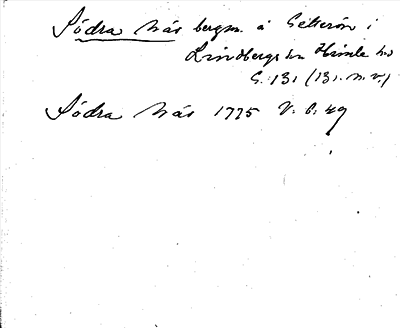 Södra Näs bergm. å Getterön i
Lindbergs sn Himle hd
G. 131 (131. n. v.)
Södra Näs 1775 V. b. 49